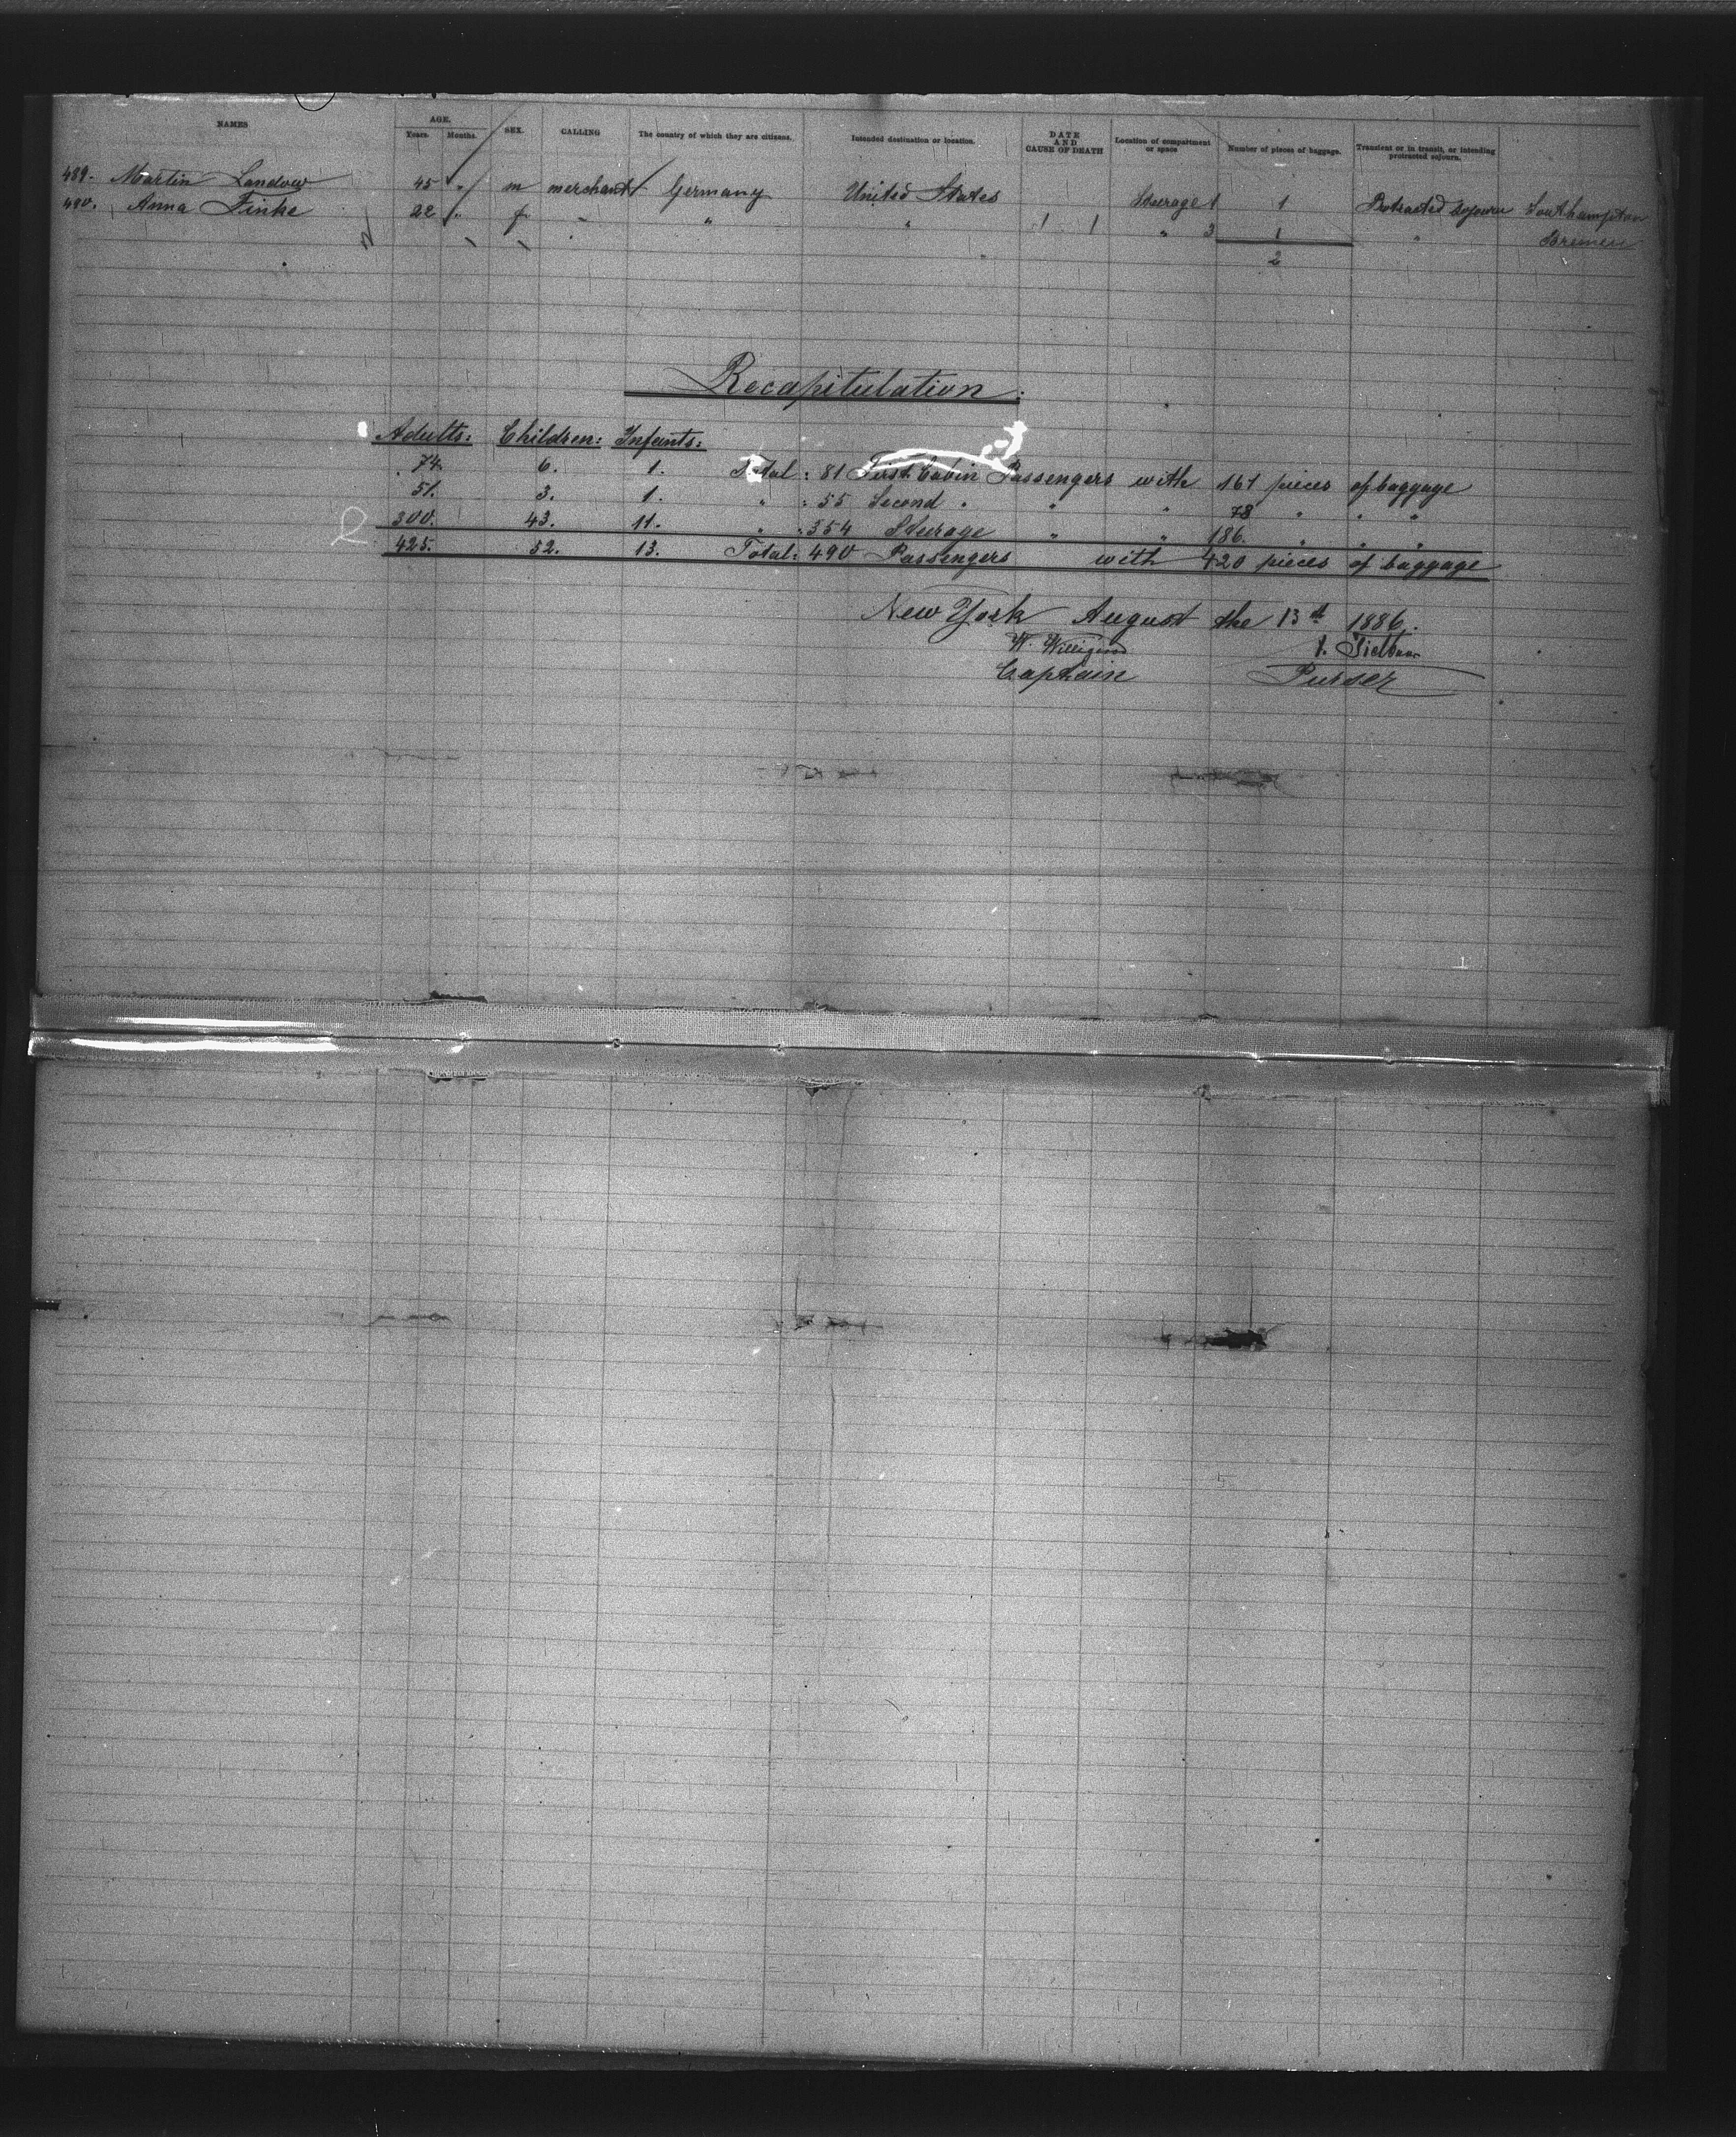 NAMES AGE. Years. Months. SEX. CALLING The country of which they are citizens. Intended destination or location. DATE AND CAUSE OF DEATH Location of compartment or space Number of pieces of baggage. Transient or in transit, or intending protracted sojourn.
489. Martin Landow 45 " m merchant Germany United States Steerage 1 1 Protracted Sojourn Southampton
490. Anna Finke 22 " f - " " " 3 1 " Bremen
2
Recapitulation.
Adults: Children: Infants:
74. 6. 1. Total: 81 First Cabin Passengers with 161 pieces of baggage
51. 3. 1. " : 55 Second " " " 78 " " "
300. 43. 11. " : 354 Steerage " " 186. " " "
425. 52. 13. Total: 490 Passengers with 420 pieces of baggage
New York August the 13th 1886.
W. Willigerod
Captain Purser